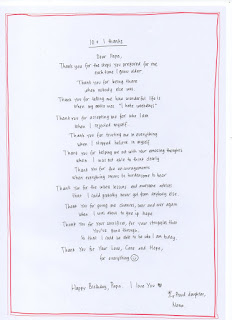 10 + 1 thanks
Dear Papa,
Thank you for the steps you prepared for me
each time I grow older
Thank you for being there
when nobody else was.
Thank you for telling me how wonderful life is
when my motto was "I hate weekdays"
Thank you for accepting me for who I am
When I rejected myself.
Thank you for trusting me in everything
when I stopped believe in myself
Thank you for helping me out with your amazing thoughts
when I was not able to think clearly
Thank you for the encouragements
When everything seems so burdensome to hear
Thank you for the whole lessons and awesome advices
that I could probably never get from anything else.
Thank you for giving me chances, over and over again
When I was about to give up hope
Thank you for your sacrifices, for your struggles that
You've gone through,
so that I could be able to be who I am today,
Thank you for your Love, Care and Hope,
for everything
Happy Birthday, Papa. I Love You
Proud daughter,